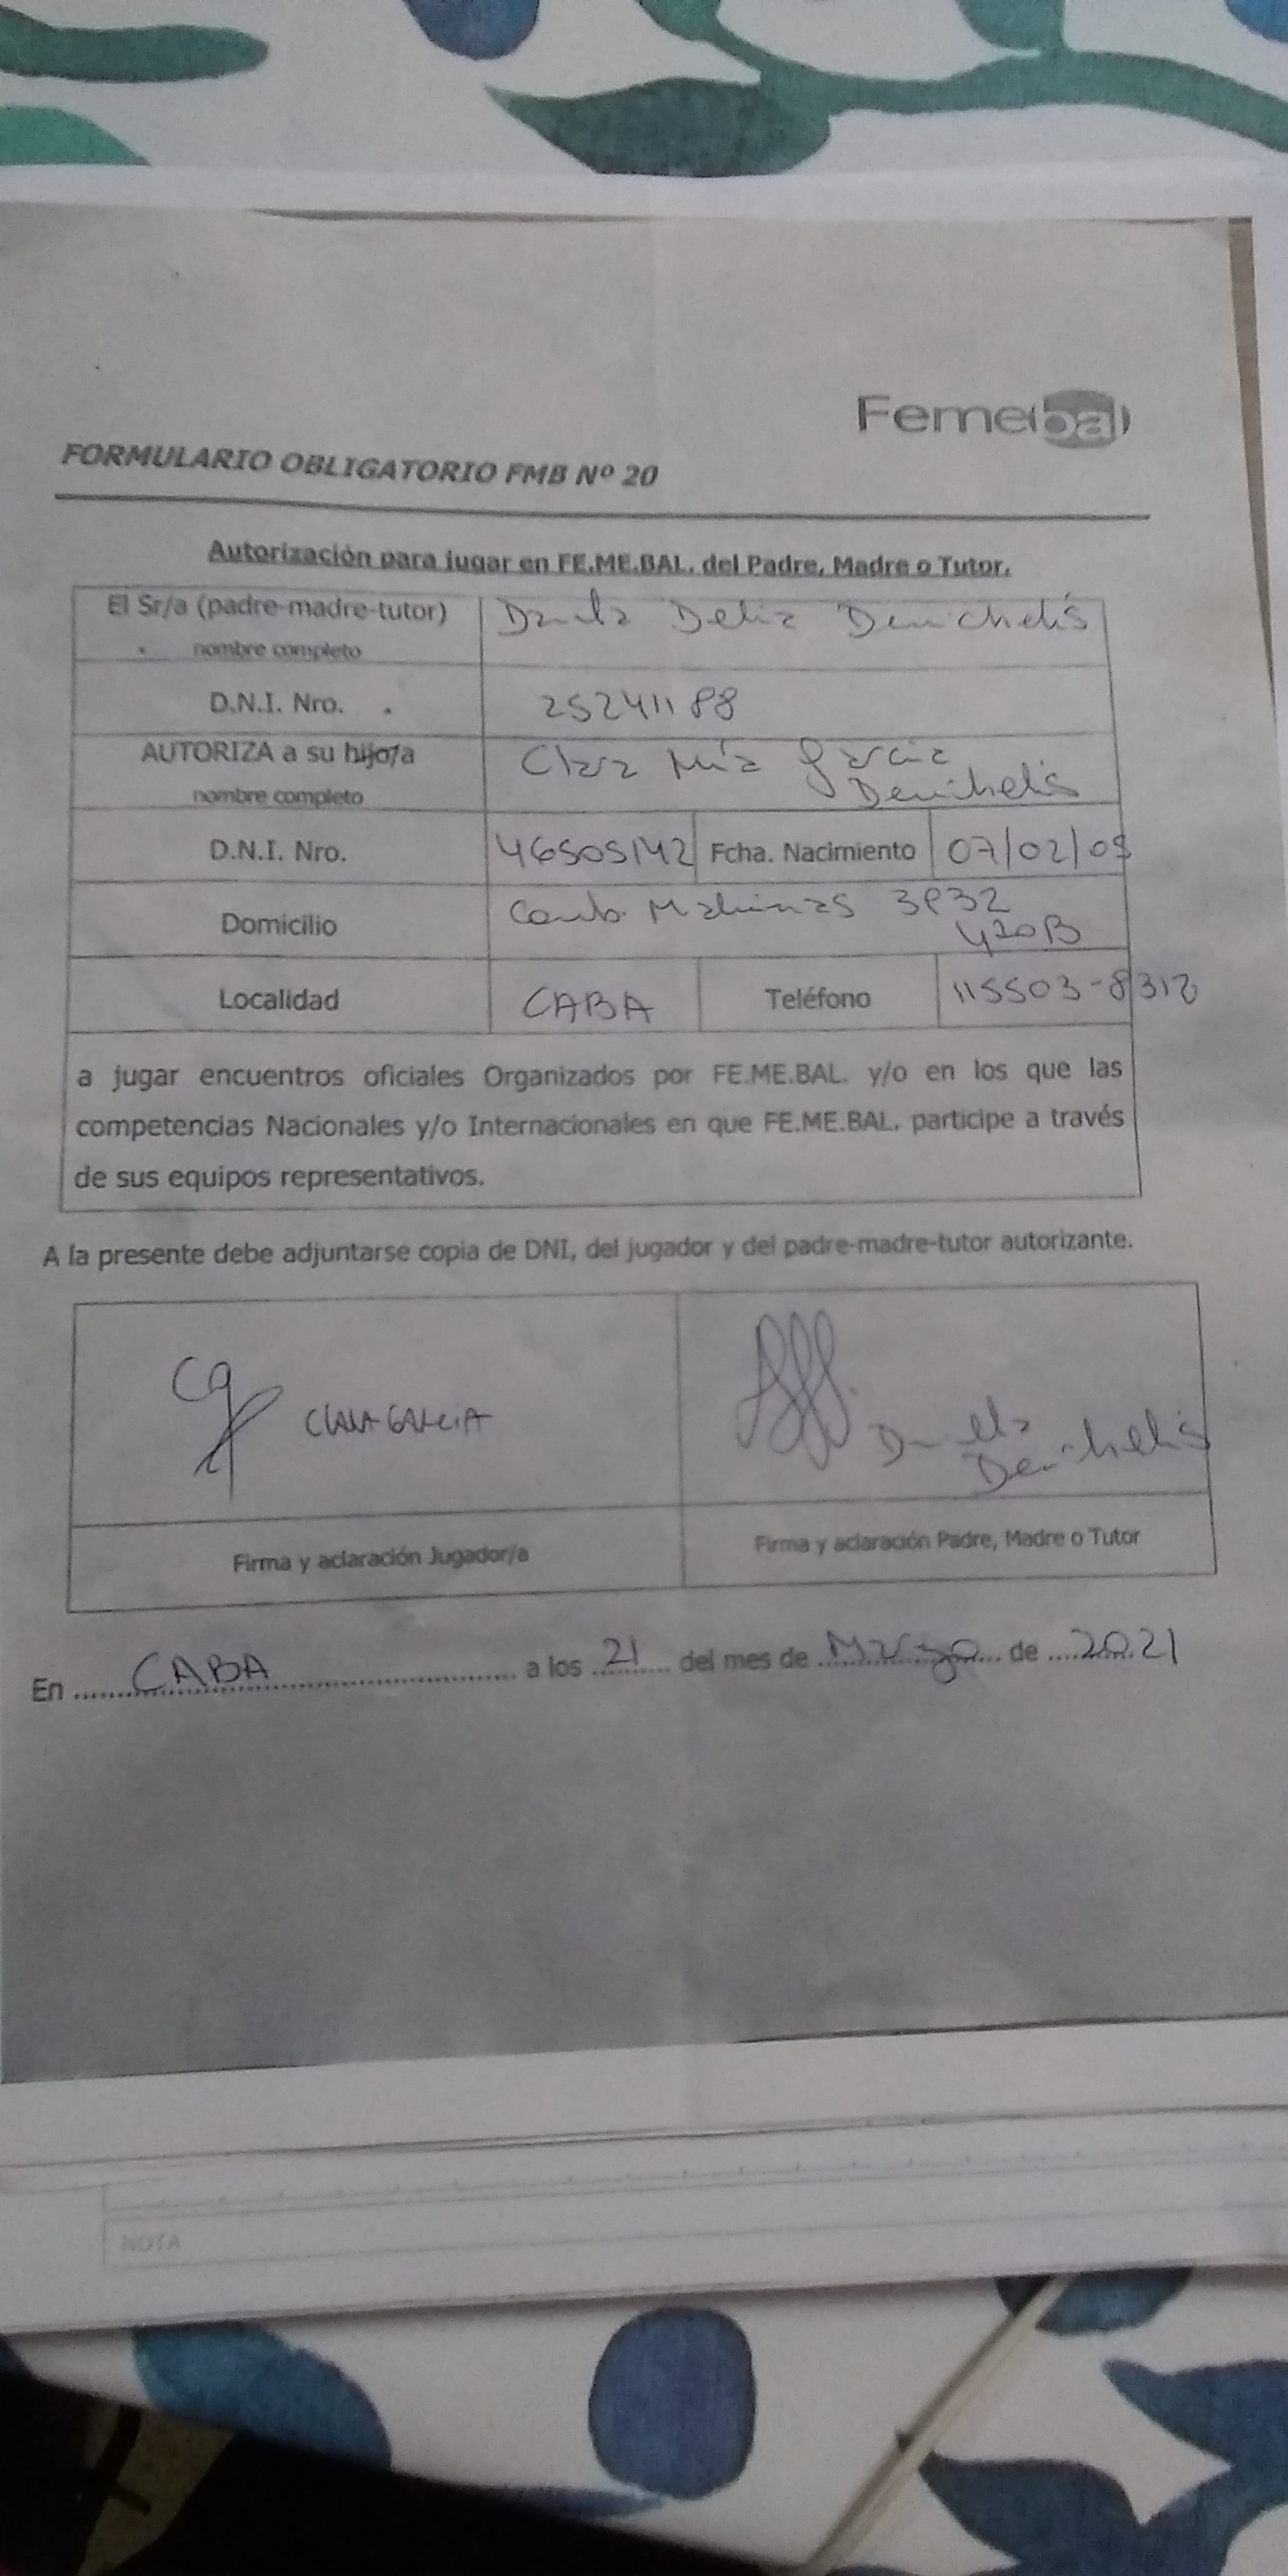 Femebal
FORMULARIO OBLIGATORIO FMB Nº 20
Autorización para jugar en FE.ME.BAL. del Padre, Madre o Tutor.
El Sr/a (padre-madre-tutor) Delia Denichelis
nombre completo
D.N.I. Nro. 25241188
AUTORIZA a su hijo/a Clara Mía García
nombre completo Denichelis
D.N.I. Nro. 46505142 Fcha. Nacimiento 07/02/05
Domicilio Malvinas
Localidad CABA Teléfono 115503-8312
a jugar encuentros oficiales Organizados por FE.ME.BAL. y/o en los que las
competencias Nacionales y/o Internacionales en que FE.ME.BAL. participe a través
de sus equipos representativos.
A la presente debe adjuntarse copia de DNI, del jugador y del padre-madre-tutor autorizante.
CLARA GARCIA
Daniela
Denichelis
Firma y aclaración Jugador/a Firma y aclaración Padre, Madre o Tutor
En CABA a los 21 del mes de Marzo de 2021
NOTA